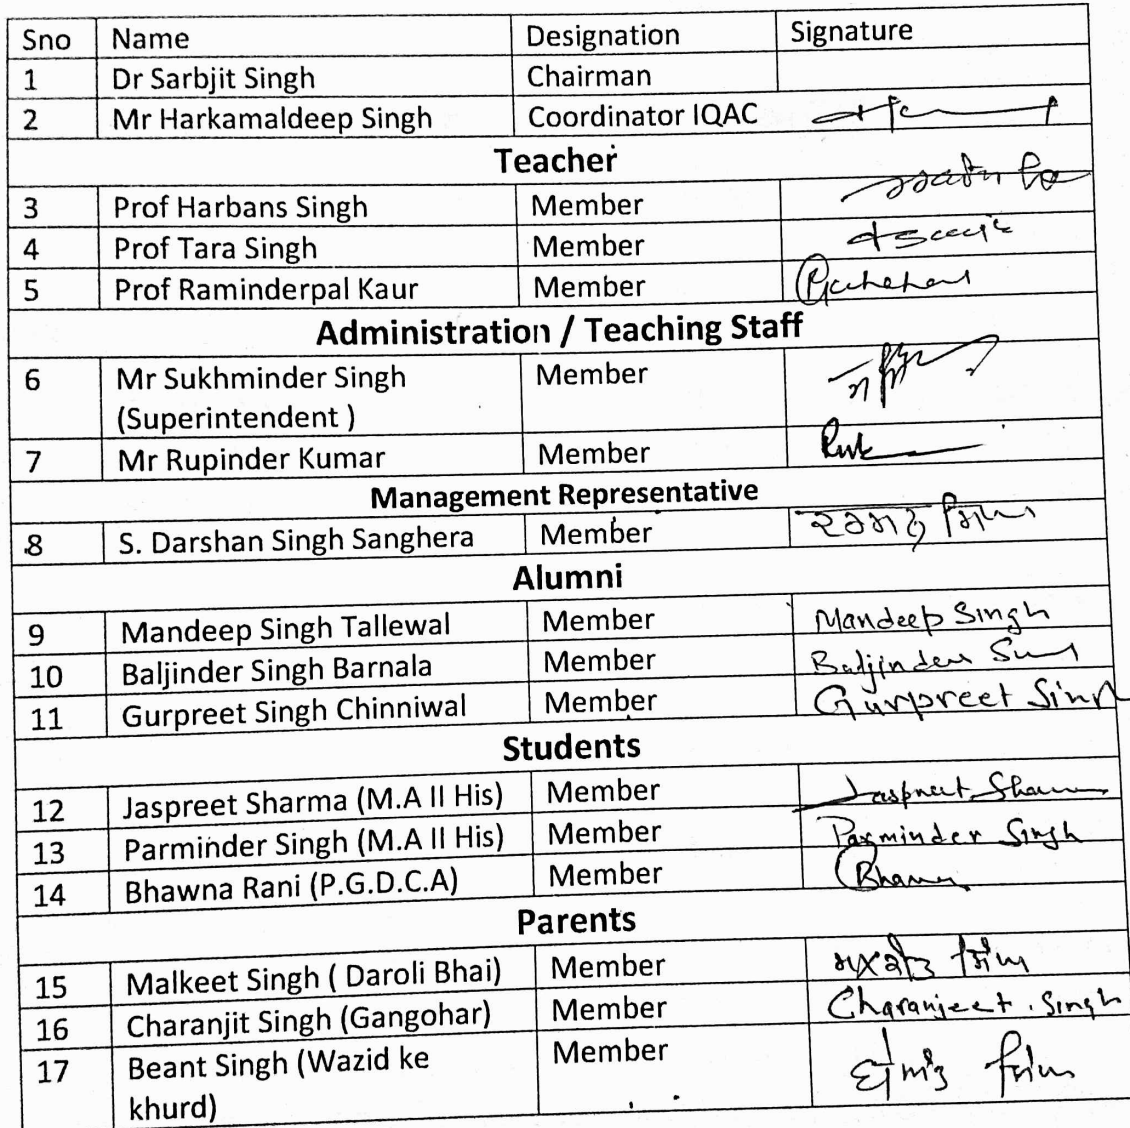 Sno Name Designation Signature
1 Dr Sarbjit Singh Chairman
2 Mr Harkamaldeep Singh Coordinator IQAC
Teacher
3 Prof Harbans Singh Member
4 Prof Tara Singh Member
5 Prof Raminderpal Kaur Member
Administration / Teaching Staff
6 Mr Sukhminder Singh Member
(Superintendent )
7 Mr Rupinder Kumar Member
Management Representative
8 S. Darshan Singh Sanghera Member
Alumni
9 Mandeep Singh Tallewal Member Mandeep Singh
10 Baljinder Singh Barnala Member Baljinder
11 Gurpreet Singh Chinniwal Member Gurpreet Singh
Students
12 Jaspreet Sharma (M.A II His) Member Jaspreet
13 Parminder Singh (M.A II His) Member Parminder Singh
14 Bhawna Rani (P.G.D.C.A) Member
Parents
15 Malkeet Singh ( Daroli Bhai) Member ਸਿੰਘ
16 Charanjit Singh (Gangohar) Member Charanjeet. Singh
17 Beant Singh (Wazid ke Member ਬੇਅੰਤ ਸਿੰਘ
khurd)